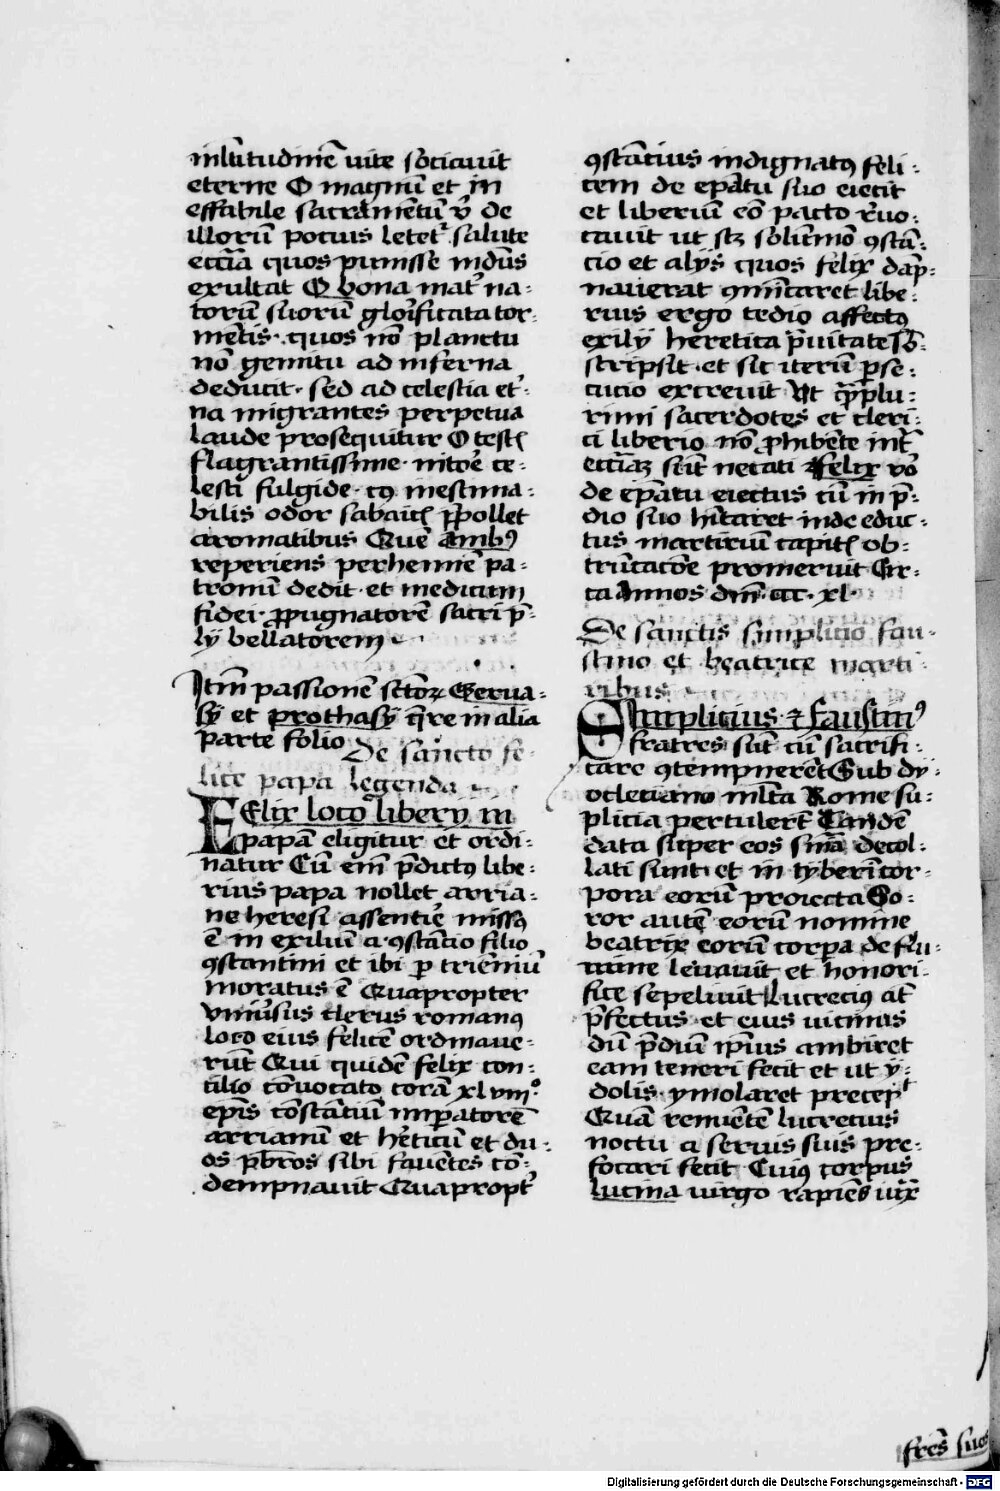 mltitudinē uite sociauit
eterne O magnū et in
effabile sacramentū ꝟ de
illorū potius letet᷑ salute
ecc̄ia quos punisse mdūs
exultat O bona mat᷑ na-
torū suorū glorificata tor-
mētis quos nō planctu
nō gemitu ad inferna
deducit· sed ad celestia et᷑-
na migrantes perpetua
laude prosequitur O testꝭ
flagrantissime· nitōe ce-
lesti fulgide· cꝰ inestima-
bilis odor sabaicꝭ p̄pollet
aromatibus Quē ambꝰ
reperiens perhennē pa-
tronū dedit· et medicum
fidei· ꝓpugnatorē sacri p̄-
lÿ bellatorem
Itm̄ passionē sctōꝝ Gerua-
sÿ et prothasÿ q̄re in alia
parte folio
De sancto fe-
lice papa legenda
FElix loco liberÿ in
papam eligitur et ordi-
natur Cū em̄ p̄dictꝰ libe-
rius papa nollet arria-
ne heresi assentiē missꝰ
ē in exiliū a ꝯstācio filio
ꝯstantini et ibi ꝑ trienniū
moratus ē Quapropter
vniūsus clerus romanꝰ
loco eius felicē ordinaue-
rūt Qui quidē felix con-
cilio cōuocato corā xlviiiº
ep̄is cōstātiū imꝑatorē
arrianū et hēticū et du-
os p̄b̄ros sibi fauētes cō-
dempnauit Quapropt᷑
ꝯstātius indignatꝰ feli-
cem de ep̄atu suo eiecit
et liberiū eō pacto r̄uo-
cauit ut sꝫ solūmō ꝯstā-
cio et alÿs quos felix dāp-
nauerat ꝯmūicaret libe-
rius ergo tedio affectꝰ
exilÿ heretica p̄uitate sb̄-
scripsit· et sic iterū ꝑse-
cucio excreuit Vt q̄ꝫplu-
rimi sacerdotes et cleri-
ci liberio nō ꝓhibēte int᷑
ecc̄iaꝫ sūt necati felix ꝟo
de ep̄atu eiectus cū in p̄-
dio suo hītaret inde educ-
tus martiriū capitꝭ ob-
trūcatōe promeruit Cir-
ca Annos dnī cc· xl·
De sanctis simplicio fau-
stino et beatrice marti-
ribus
SImplicius ⁊ faustinꝰ
fratres sūt cū sacrifi-
care ꝯtempnerēt Sub dÿ-
ocletiano mlta Rome su-
plicia pertulerūt Tandē
data super eos snīa decol-
lati sunt· et in tyberī cor-
pora eorū proiecta So-
ror autē eorū nomine
beatrix eorū corꝑa de flu-
mine leuauit et honori-
fice sepeliuit Lucreciꝰ at̄
p̄fectus et eius uicinus
dū p̄diū ip̄ius ambiret
eam teneri fecit et ut ÿ-
dolis ymolaret precepit
Quā renuētem lucretius
noctu a seruis suis pre-
focari fecit Cuiꝰ corpus
lucina uirgo rapiēs iux̄
fres̄ suos
Digitalisierung gefördert durch die Deutsche Forschungsgemeinschaft - DFG